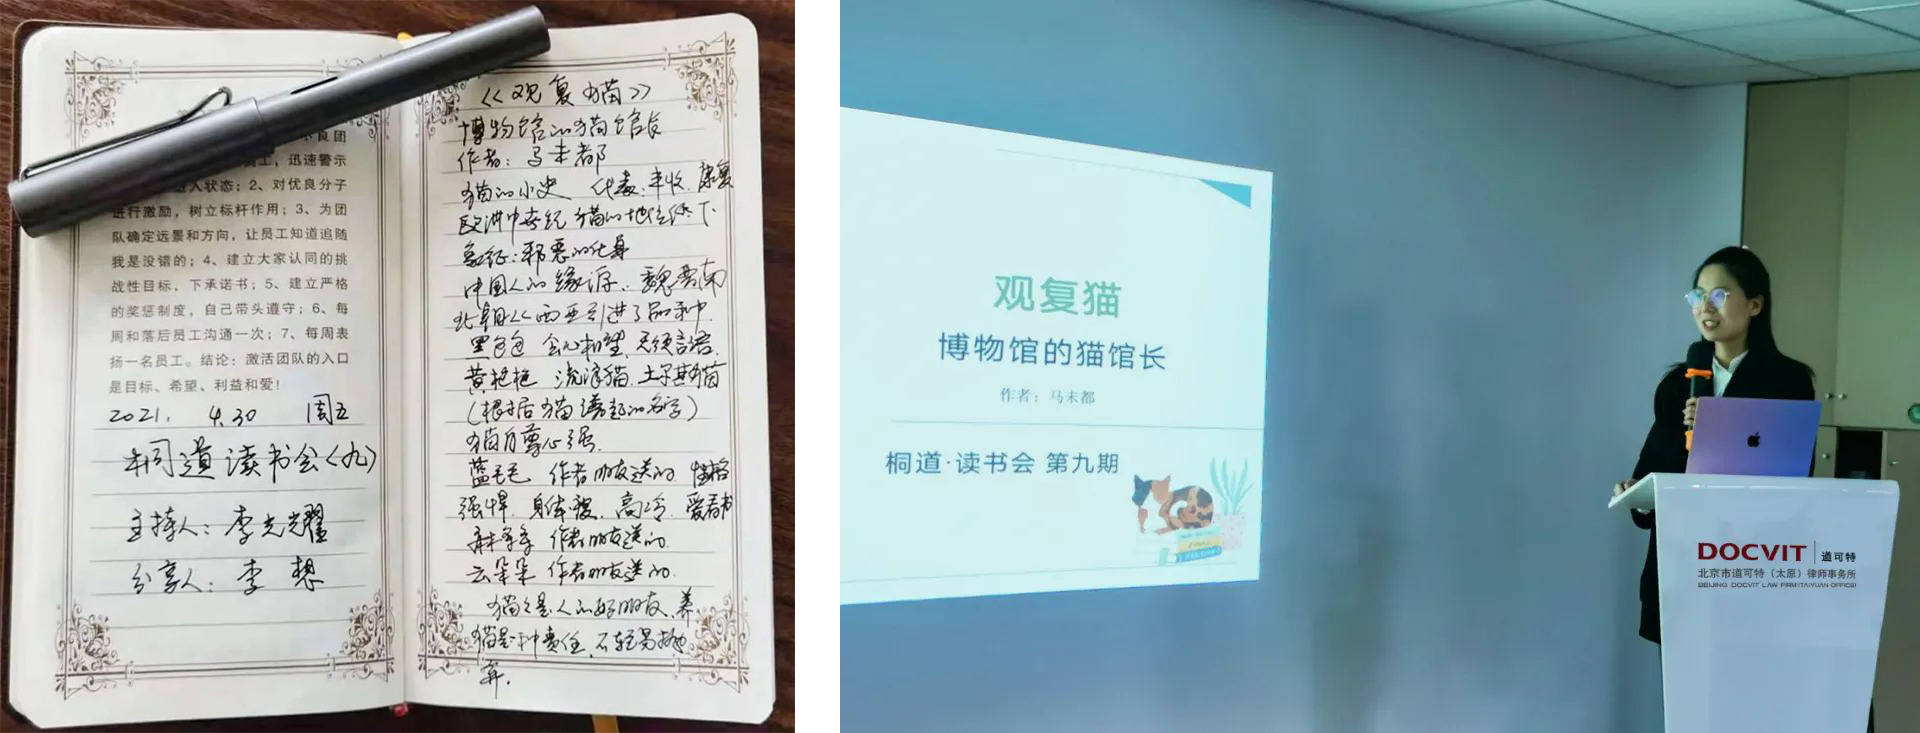 不良团
员工，迅速警示
进入状态；2、对优良分子
进行激励，树立标杆作用；3、为团
队确定远景和方向，让员工知道追随
我是没错的；4、建立大家认同的挑
战性目标，下承诺书；5、建立严格
的奖惩制度，自己带头遵守；6、每
周和落后员工沟通一次；7、每周表
扬一名员工。结论：激活团队的入口
是目标、希望、利益和爱！
2021. 4.30 周五
桐道读书会〈九〉
主持人：李光耀
分享人：李想
《观复猫》
博物馆的猫馆长
作者：马未都
猫的小史 代表：丰收、康复
欧洲中世纪 猫的地位低下
象征：邪恶的化身
中国人的缘源：魏晋南
北朝 西亚引进了品种
黑包包 会心相望，无须言语
黄枪枪 流浪猫，土子其猫
（根据猫谱起的名字）
猫自尊心强.
蓝毛毛 作者朋友送的，性格
强悍，身体瘦，高冷，爱看书
麻条条 作者朋友送的
云朵朵 作者朋友送的.
猫是人的好朋友，养
猫是一种责任，不轻易抛
弃.
观复猫
博物馆的猫馆长
作者：马未都
桐道·读书会 第九期
DOCVIT 道可特
北京市道可特（太原）律师事务所
BEIJING DOCVIT LAW FIRM(TAIYUAN OFFICE)